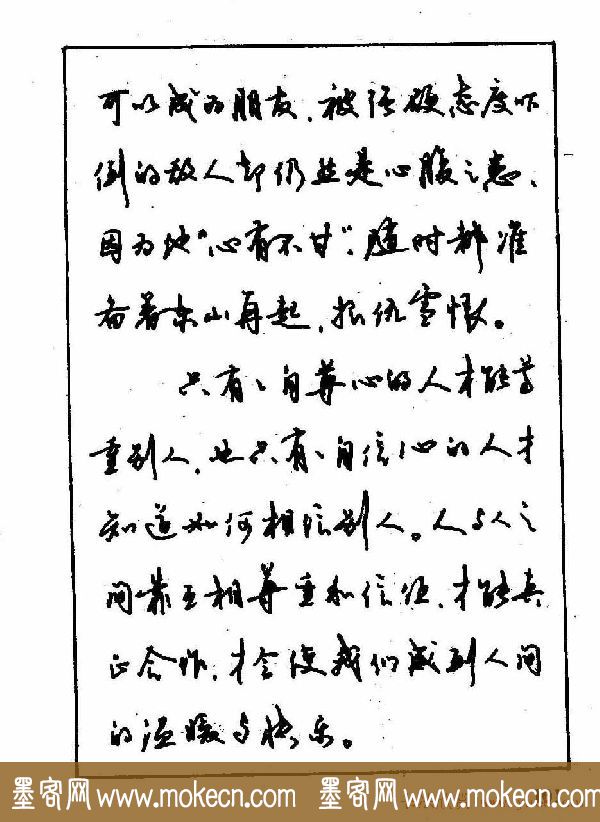 可以成为朋友，被强硬态度吓
倒的敌人却仍然是心腹之患，
因为他“心有不甘”，随时都准
备着东山再起，报仇雪恨。
只有有自尊心的人才能尊
重别人，也只有有自信心的人才
知道如何相信别人。人与人之
间靠互相尊重和信任，才能真
正合作，才会使我们感到人间
的温暖与快乐。
墨客网 www.mokecn.com 墨客网 www.mokecn.com